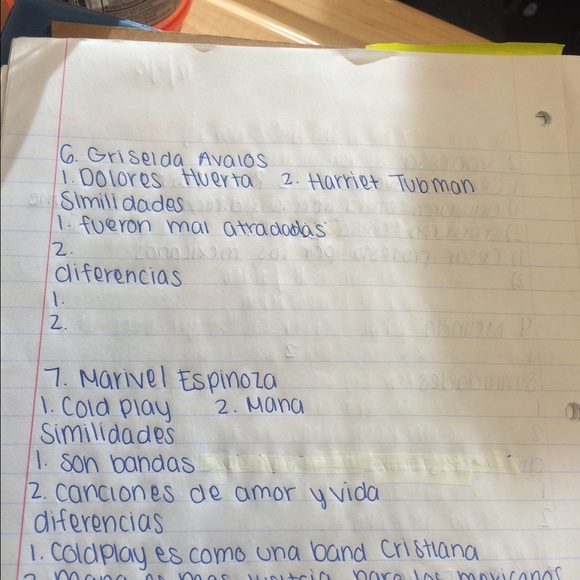 6. Griselda Avalos
1. Dolores Huerta 2. Harriet Tubman
Similidades
1. fueron mal atradadas
2.
diferencias
1.
2.
7. Marivel Espinoza
1. Cold play 2. Mana
Similidades
1. son bandas
2. canciones de amor y vida
diferencias
1. Coldplay es como una band Cristiana
2. mana es mas para los mexicanos